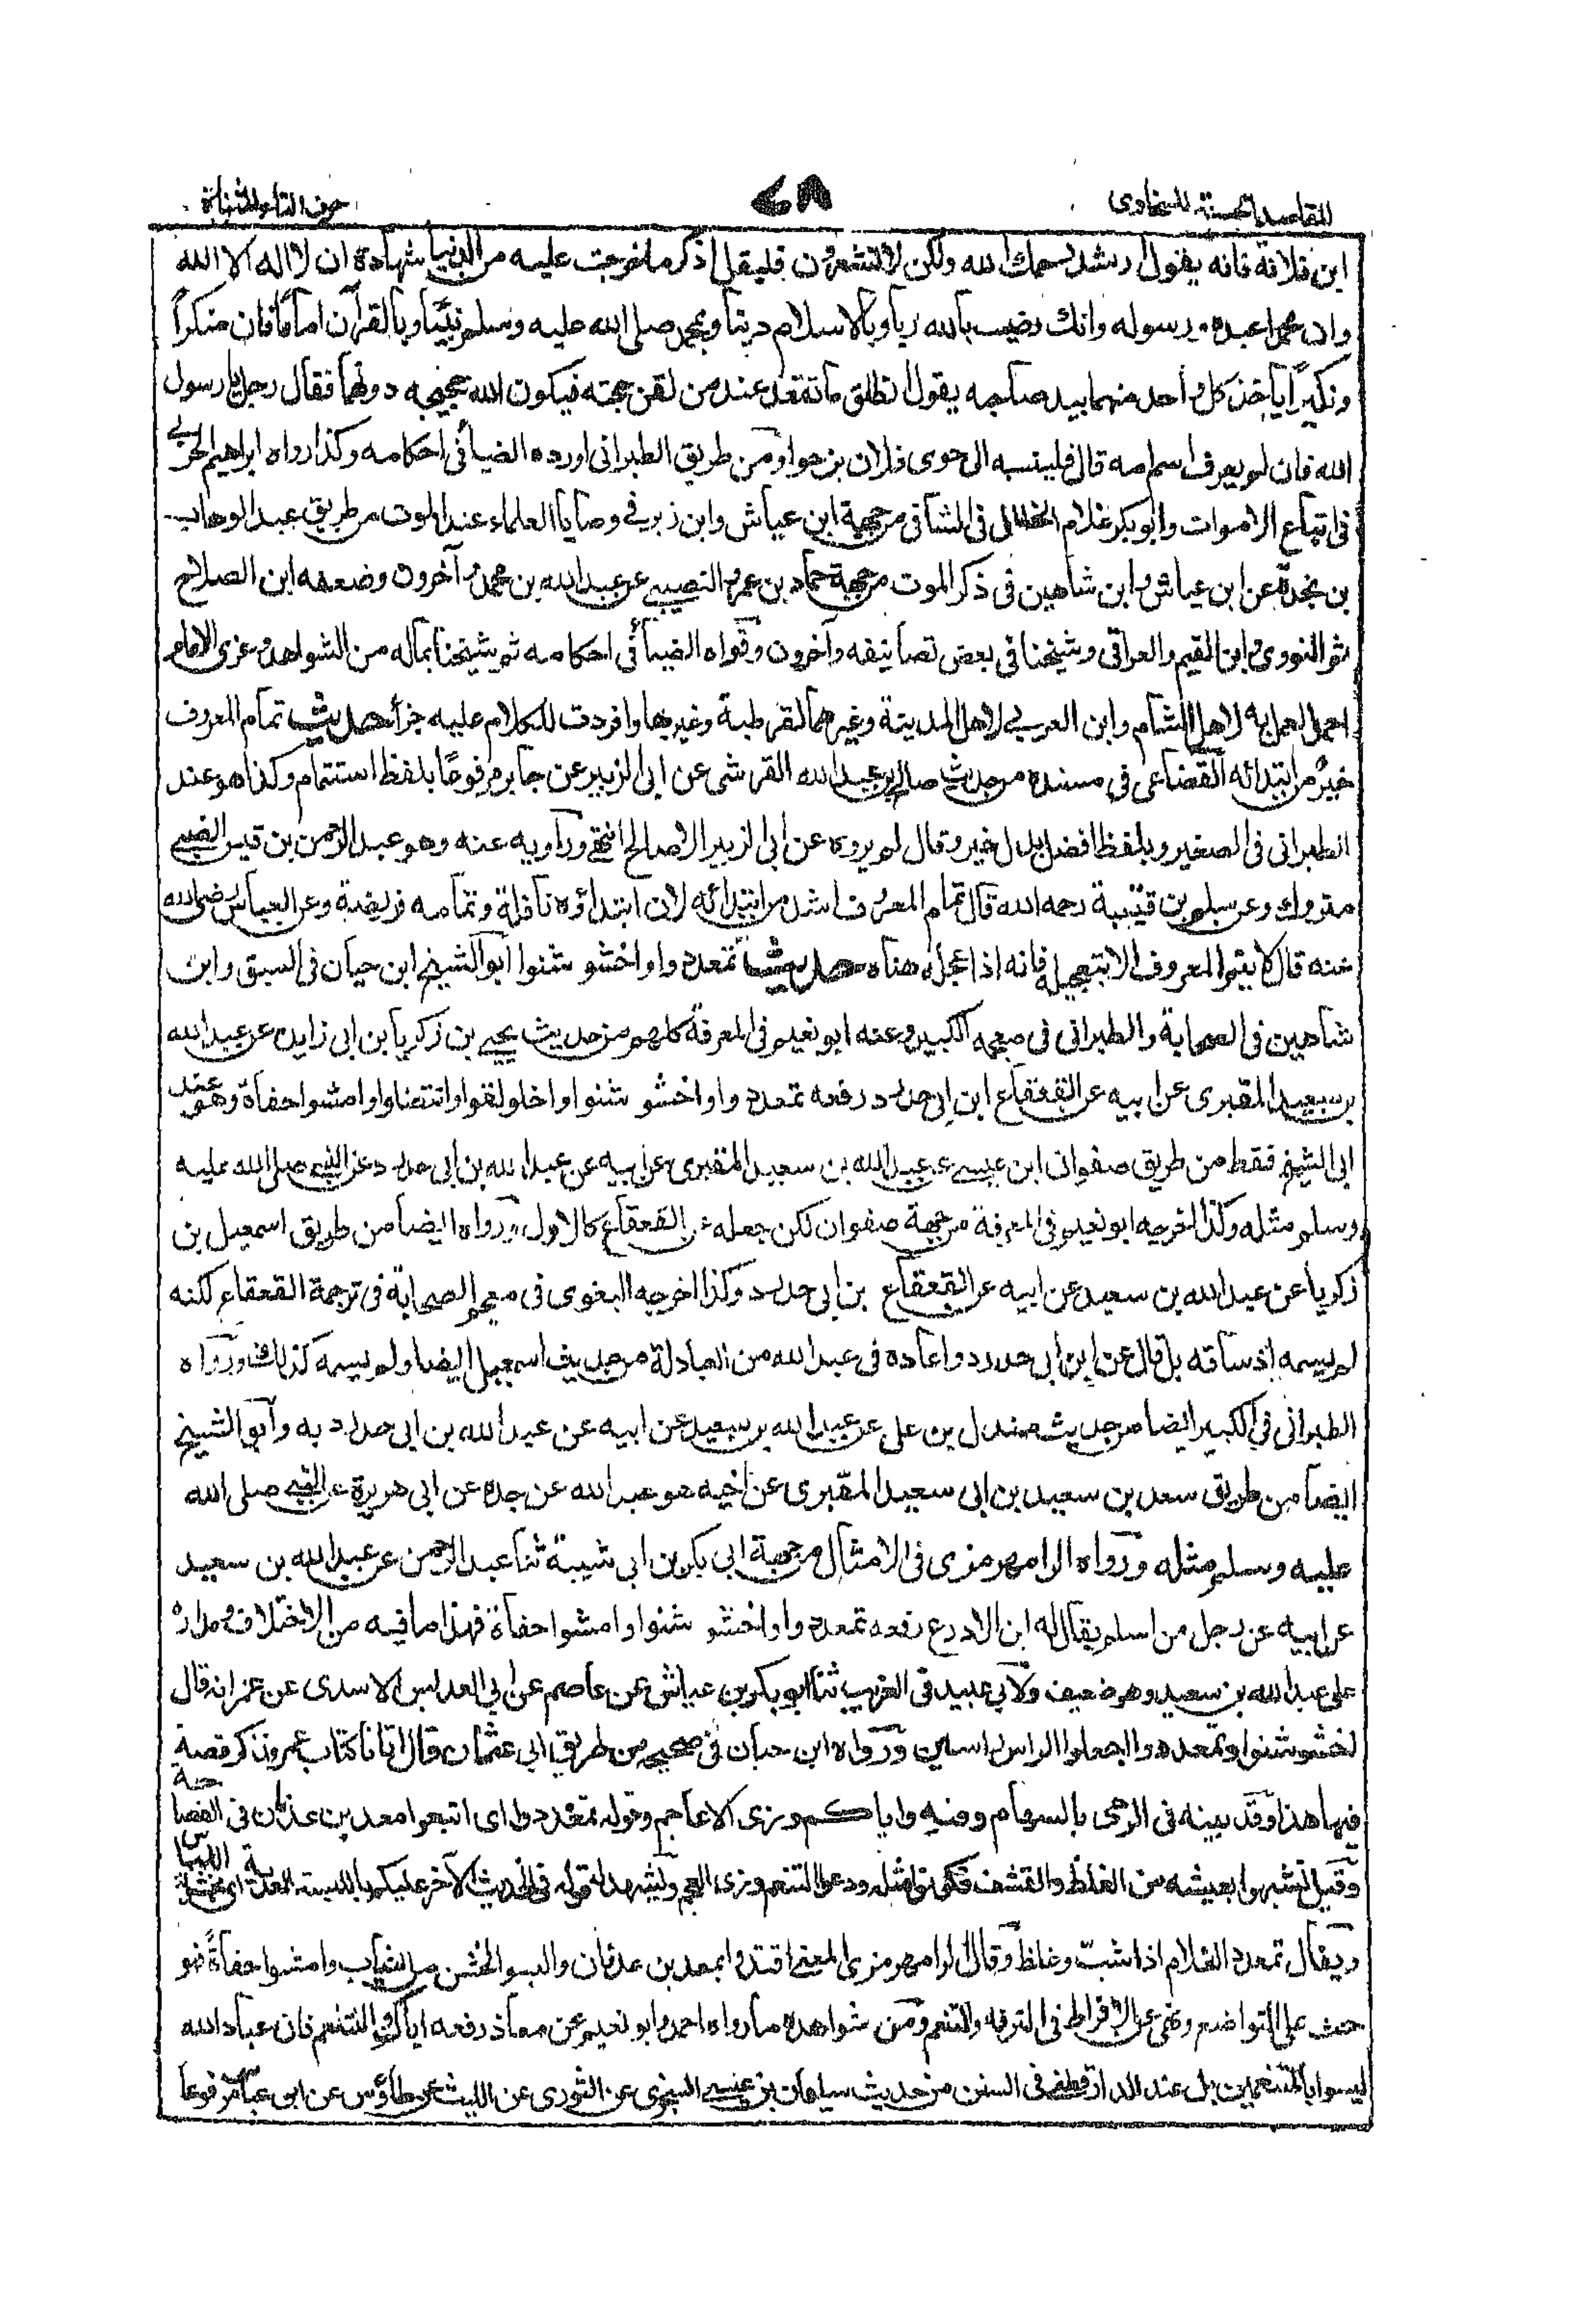 المقاصد الحسنة للسخاوى
٧٨
حرف التاء المثناة
ابن فلانة فانه يقول ارشد يرحمك الله ولكن لا تشعرون فليقل اذكر ما خرجت عليه من الدنيا شهادة ان لا اله الا الله
وان محمدا عبده ورسوله وانك رضيت بالله ربا وبالاسلام دينا وبمحمد صلى الله عليه وسلم نبيّا وبالقرآن اماما فان منكراً
ونكيراً ياخذ كل واحد منهما بيد صاحبه يقول انطلق ما نقعد عند من لقن حجته فيكون الله حجيجه دونهما فقال رجل يا رسول
الله فان لم يعرف اسم امه قال فلينسبه الى حوى فلان بن حوا ومن طريق الطبرانى اورده الضيا فى احكامه وكذا رواه ابراهيم الحربى
فى اتباع الاموات وابو بكر غلام الخلال فى الشافى من جهة ابن عياش وابن زبر فى وصايا العلماء عند الموت من طريق عبد الوهاب
بن نجدة عن ابن عياش وابن شاهين فى ذكر الموت من جهة حماد بن عمرو النصيبى عن عبد الله بن محمد وآخرون وضعفه ابن الصلاح
ثم النووى وابن القيم والعراقى وشيخنا فى بعض تصانيفه وآخرون وقواه الضيا فى احكامه ثم شيخنا بما له من الشواهد وعزى الامام
احمد العمل به لاهل الشام وابن العربى لاهل المدينة وغيرهما لقرطبة وغيرها وافردت للكلام عليه جزأ حديث تمام المعروف
خير من ابتدائه القضاعى فى مسنده من حديث صالح بن عبد الله القرشى عن ابى الزبير عن جابر مرفوعا بلفظ استتمام وكذا هو عند
الطبرانى فى الصغير وبلفظ افضل بدل خير وقال لم يروه عن ابى الزبير الا صالح انتهى وراويه عنه وهو عبد الرحمن بن قيس الضبى
متروك وعن سلم بن قتيبة رحمه الله قال تمام المعروف اشد من ابتدائه لان ابتداؤه نافلة وتمامه فريضة وعن العباس رضى الله
عنه قال لا يتم المعروف الا بتعجيله فانه اذا عجله هناه حديث تمعددوا واخشوشنوا ابو الشيخ ابن حيان فى السبق وابن
شاهين فى الصحابة والطبرانى فى معجمه الكبير وعنه ابو نعيم فى المعرفة كلهم من حديث يحيى بن زكريا بن ابى زايدة عن عبد الله
بن سعيد المقبرى عن ابيه عن القعقاع ابن ابى حدرد رفعه تمعددوا واخشوشنوا واخلولقوا وانتضلوا وامشوا حفاة وهو عند
ابى الشيخ فقط من طريق صفوان ابن عيسى عن عبد الله بن سعيد المقبرى عن ابيه عن عبد الله بن ابى حدرد عن النبى صلى الله عليه
وسلم مثله وكذا اخرجه ابو نعيم فى المعرفة من جهة صفوان لكن جعله عن القعقاع كالاول ورواه ايضا من طريق اسمعيل بن
زكريا عن عبد الله بن سعيد عن ابيه عن القعقاع بن ابى حدرد وكذا اخرجه البغوى فى معجم الصحابة فى ترجمة القعقاع لكنه
لم يسمه اذ ساقه بل قال عن ابن ابى حدرد واعاده فى عبد الله من العبادلة من حديث اسمعيل ايضا ولم يسمه كذلك ورواه
الطبرانى فى الكبير ايضا من حديث مندل بن على عن عبد الله بن سعيد عن ابيه عن عبد الله بن ابى حدرد به وابو الشيخ
ايضا من طريق سعد بن سعيد بن ابى سعيد المقبرى عن اخيه هو عبد الله عن جده عن ابى هريرة عن النبى صلى الله
عليه وسلم مثله ورواه الرامهرمزى فى الامثال من جهة ابى بكر بن ابى شيبة ثنا عبد الرحمن عن عبد الله بن سعيد
عن ابيه عن رجل من اسلم يقال له ابن الادرع رفعه تمعددوا واخشوشنوا وامشوا حفاة فهذا ما فيه من الاختلاف ومداره
على عبد الله بن سعيد وهو ضعيف ولابى عبيد فى الغريب ثنا ابو بكر بن عياش عن عاصم عن ابى العدبس الاسدى عن عمر انه قال
اخشوشنوا وتمعددوا واجعلوا الراس راسين ورواه ابن حبان فى صحيحه من طريق ابى عثمان قال اتانا كتاب عمر فذكر قصة
فيها هذا وقد بينه فى الرمى بالسهام وفيه واياكم وزى الاعاجم وقوله تمعددوا اى اتبعوا معد بن عدنان فى الفصاحة
وقيل تشبهوا بعيشه من الغلظ والقشف فكونوا مثله ودعوا التنعم وزى العجم ويشهد له قوله فى الحديث الآخر عليكم باللبسة المعدية اى خشونة اللباس
ويقال تمعدد الغلام اذا شبّ وغلظ وقال الرامهرمزى المعنى اقتدوا بمعد بن عدنان والبسوا الخشن من الثياب وامشوا حفاةً فهو
حث على التواضع ونهى عن الافراط فى الترفه والتنعم ومن شواهده ما رواه احمد وابو نعيم عن معاذ رفعه اياكم والتنعم فان عباد الله
ليسوا بالمتنعمين بل عند الدارقطنى فى السنن من حديث سليمان بن عيسى السجزى عن الثورى عن الليث عن طاؤس عن ابن عباس مرفوعا